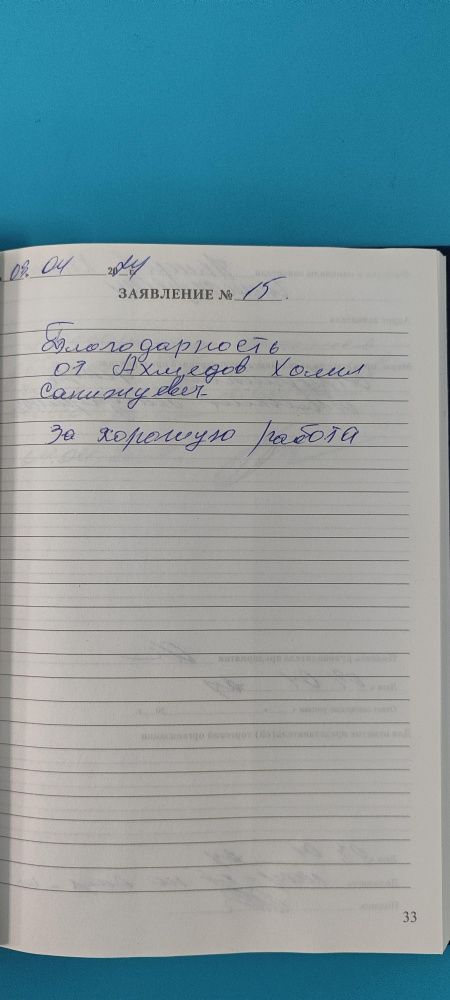 03. 04 2024 г.
ЗАЯВЛЕНИЕ № 15.
Благодарность
от Ахмедов Холил
за хорошую работа
33